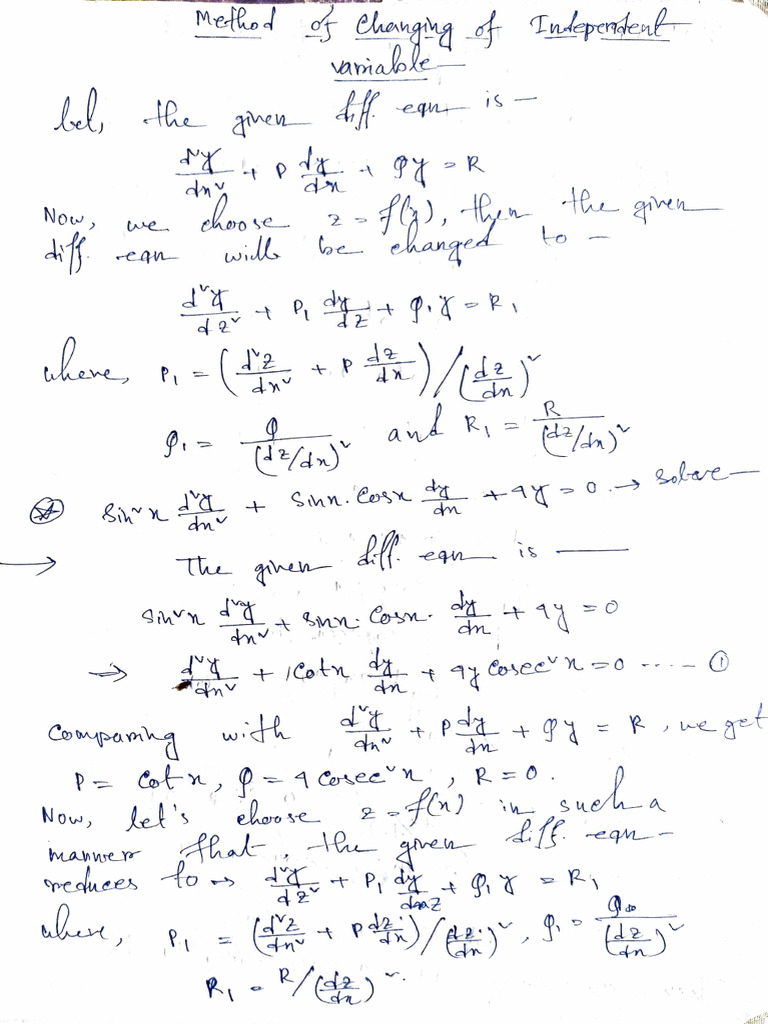 Method of Changing of Independent
variable —
Let, the given diff. eqn is —
d²y/dx² + P dy/dx + Qy = R
Now, we choose z = f(y), then the given
diff. eqn will be changed to —
d²y/dz² + P₁ dy/dz + Q₁y = R₁
where, P₁ = (d²z/dx² + P dz/dx) / (dz/dx)²
Q₁ = Q/(dz/dx)² and R₁ = R/(dz/dx)²
Sin²x d²y/dx² + Sinx. Cosx dy/dx + 4y = 0. → solve —
→ The given diff. eqn is —
Sin²x d²y/dx² + Sinx. Cosx. dy/dx + 4y = 0
⇒ d²y/dx² + Cotx dy/dx + 4y Cosec²x = 0 ..... ①
Comparing with d²y/dx² + P dy/dx + Qy = R, we get
P = Cot x, Q = 4 Cosec²x, R = 0.
Now, let's choose z = f(x) in such a
manner that, the given diff. eqn —
reduces to → d²y/dz² + P₁ dy/dz + Q₁ y = R₁
where, P₁ = (d²z/dx² + P dz/dx) / (dz/dx)², Q₁ = Q/(dz/dx)²
R₁ = R/(dz/dx)².